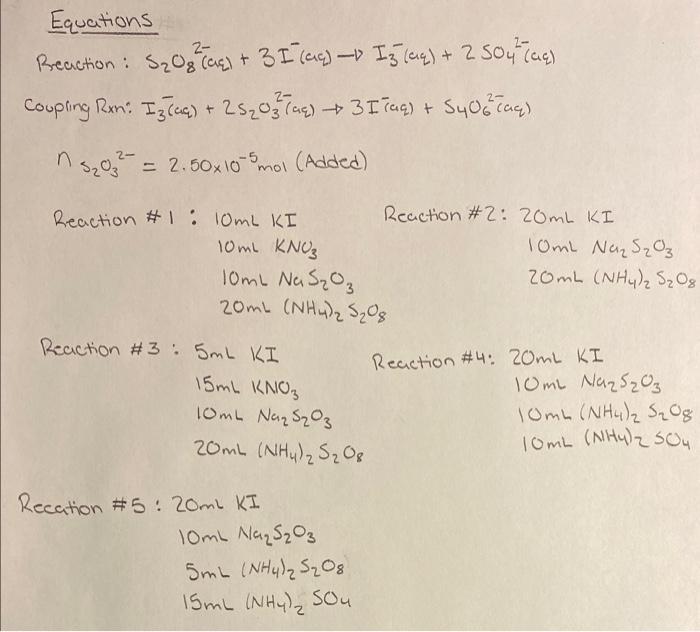 Equations
Reaction : S₂O₈²⁻(aq) + 3I⁻(aq) → I₃⁻(aq) + 2 SO₄²⁻(aq)
Coupling Rxn: I₃⁻(aq) + 2S₂O₃²⁻(aq) → 3I⁻(aq) + S₄O₆²⁻(aq)
n S₂O₃²⁻ = 2.50x10⁻⁵mol (Added)
Reaction #1 : 10mL KI
10mL KNO₃
10mL NaS₂O₃
20mL (NH₄)₂ S₂O₈
Reaction #2: 20mL KI
10mL Na₂S₂O₃
20mL (NH₄)₂ S₂O₈
Reaction #3 : 5mL KI
15mL KNO₃
10mL Na₂S₂O₃
20mL (NH₄)₂ S₂O₈
Reaction #4: 20mL KI
10mL Na₂S₂O₃
10mL (NH₄)₂ S₂O₈
10mL (NH₄)₂ SO₄
Recation #5 : 20mL KI
10mL Na₂S₂O₃
5mL (NH₄)₂ S₂O₈
15mL (NH₄)₂ SO₄